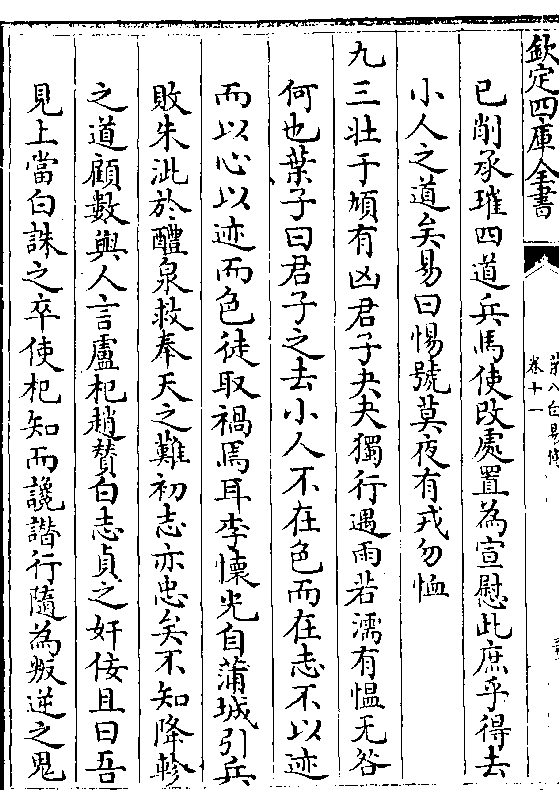 欽定四庫全書
卷十一
已削承璀四道兵馬使改處置為宣慰此庶乎得去
小人之道矣易曰惕號莫夜有戎勿恤
九三壯于頄有凶君子夬夬獨行遇雨若濡有慍无咎
何也葉子曰君子之去小人不在色而在志不以迹
而以心以迹而色徒取禍焉耳李懷光自蒲城引兵
敗朱泚於醴泉救奉天之難初志亦忠矣不知降軫
之道顧數與人言盧杞趙贊白志貞之奸佞且曰吾
見上當白誅之卒使杞知而讒譖行隨為叛逆之鬼